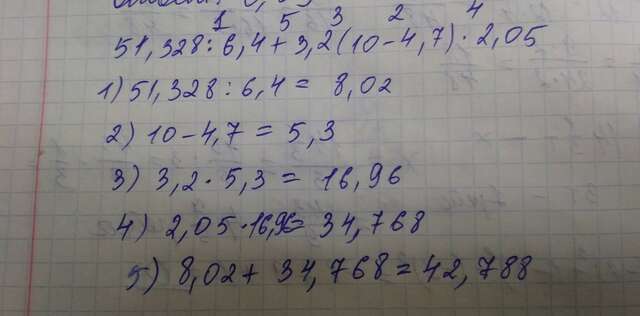 1 5 3 2 4
51,328:6,4+3,2(10-4,7)·2,05
1) 51,328:6,4= 8,02
2) 10-4,7 = 5,3
3) 3,2·5,3 = 16,96
4) 2,05·16,96= 34,768
5) 8,02+ 34,768=42,788